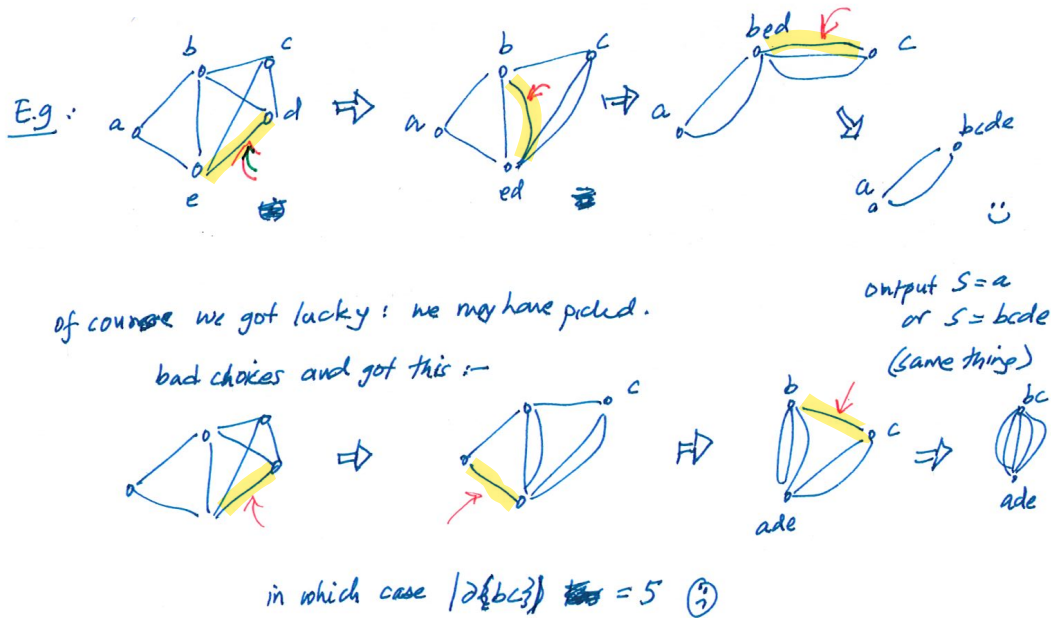 E.g :
b c a d e
b c a ed
bed c a
bcde a
output S = a
or S = bcde
(same thing)
of course we got lucky : we may have picked.
bad choices and got this :-
c
b c ade
bc ade
in which case |∂{bc}| = 5